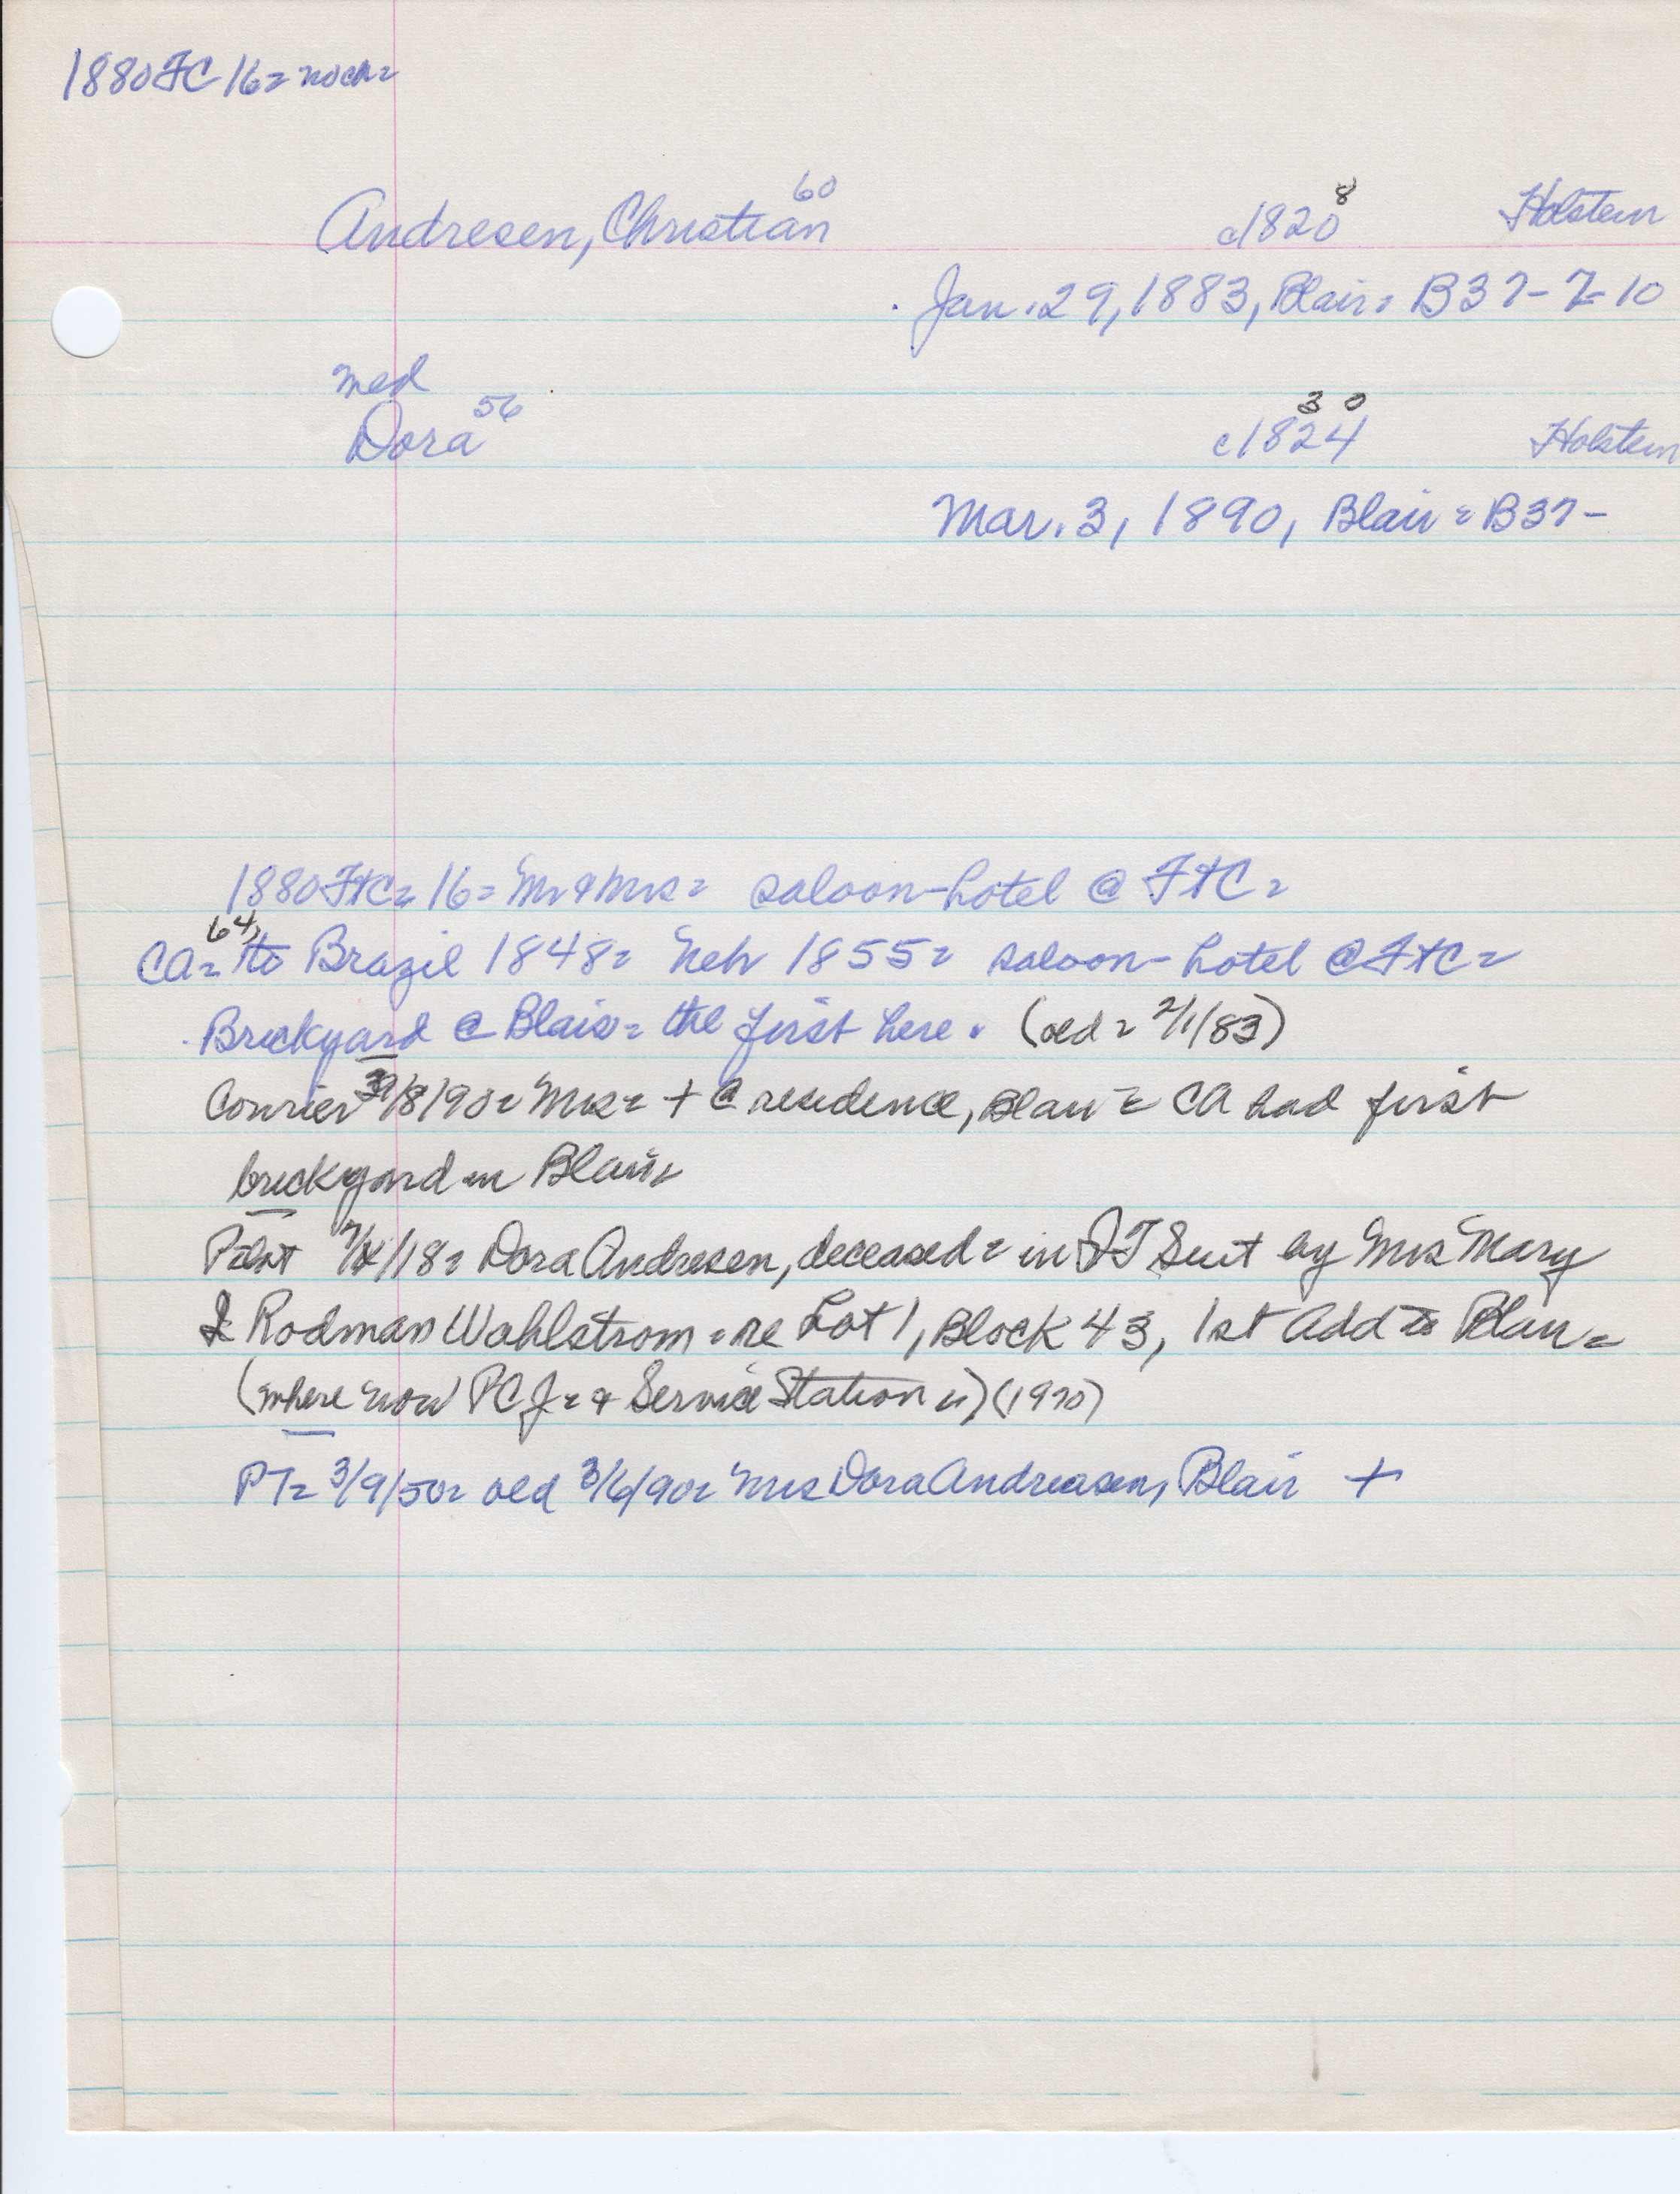 1880 FC 16 = no ch =
60
Andresen, Christian c1820 8 Holstein
Jan. 29, 1883, Blair = B37-7-10
med
Dora 56 c1824 3 0 Holstein
Mar. 3, 1890, Blair = B37-
1880 FtC = 16 = Mr & Mrs = saloon-hotel @ FtC =
64,
CA = to Brazil 1848 = Neb 1855 = saloon-hotel @ FtC =
Brickyard @ Blair = the first here. (old = 2/1/83)
Courier /8/90 = Mrs = + @ residence, Blair = CA had first
brickyard in Blair =
Pilot /18 = Dora Andresen, deceased = in Suit by Mrs Mary
& Rodman Wahlstrom = re Lot 1, Block 43, 1st Add to Blair =
(where now PC J = & Service Station is) (1970)
PT = 3/9/50 = old 3/6/90 = Mrs Dora Andreasen, Blair +